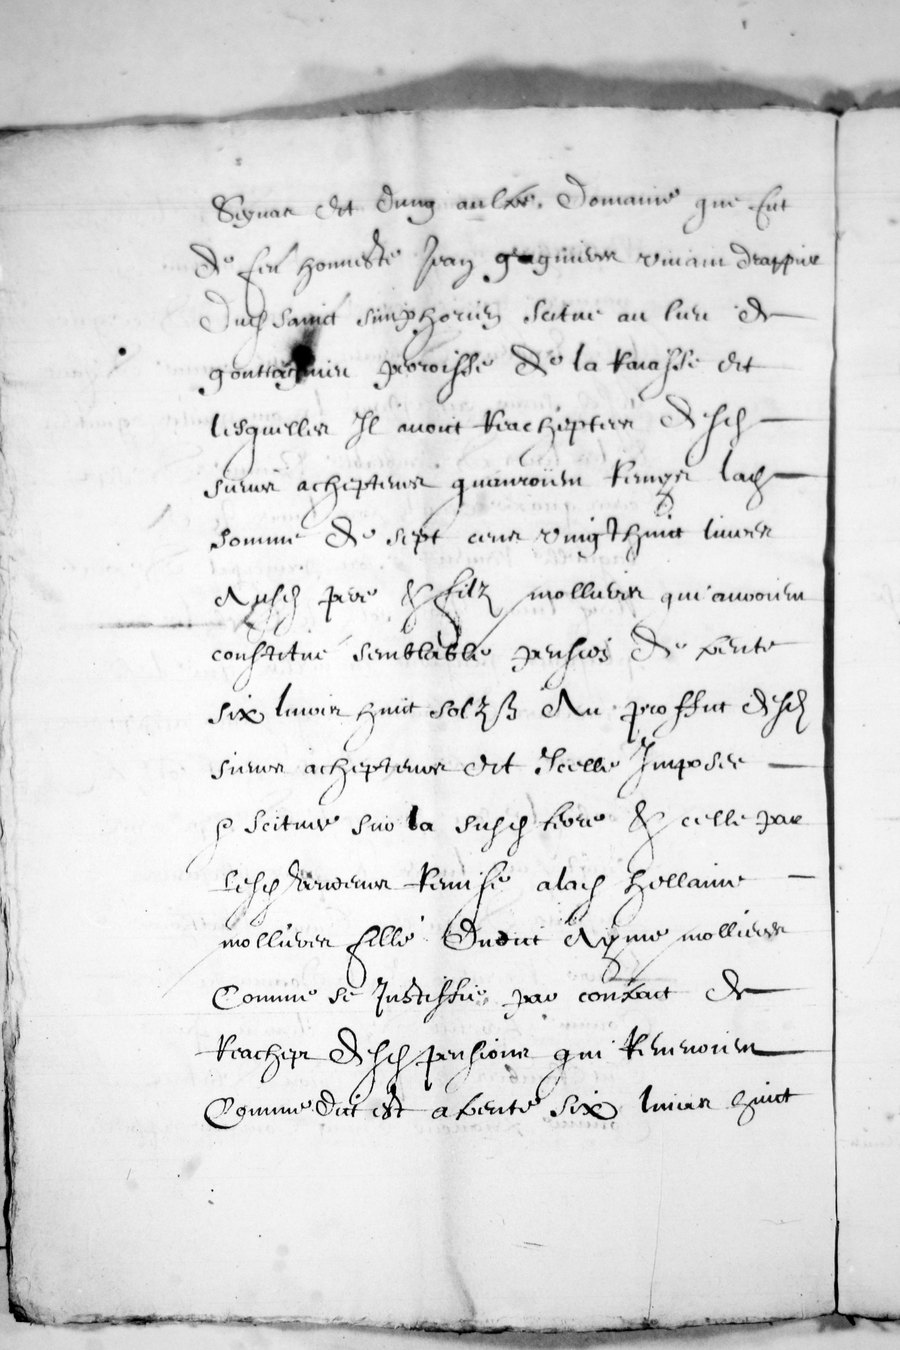 Signar et dung aultre domaine que fut
de feu honneste Jean gragnieur vivant drappier
dud sainct simphorien scitue au lieu de
parroisse de la et
lesquelles Il avoict reacheptees desd
sieurs achepteurs quauroient remys lad
somme de sept cens vingt huict livres
Ausd pere & filz mollieres qui avoient
constitué semblable pension de trente
six livres huict solz Au proffict desd
sieurs achepteurs et Icelle Imposee
& scituee sur la susd terre & celle par
lesd vendeurs remise a lad hellainne
mollieres fille dudict Ayme mollieres
Comme se Justiffie par contract de
reachept desd pensions qui revenoient
Comme dict est a trente six livres huict